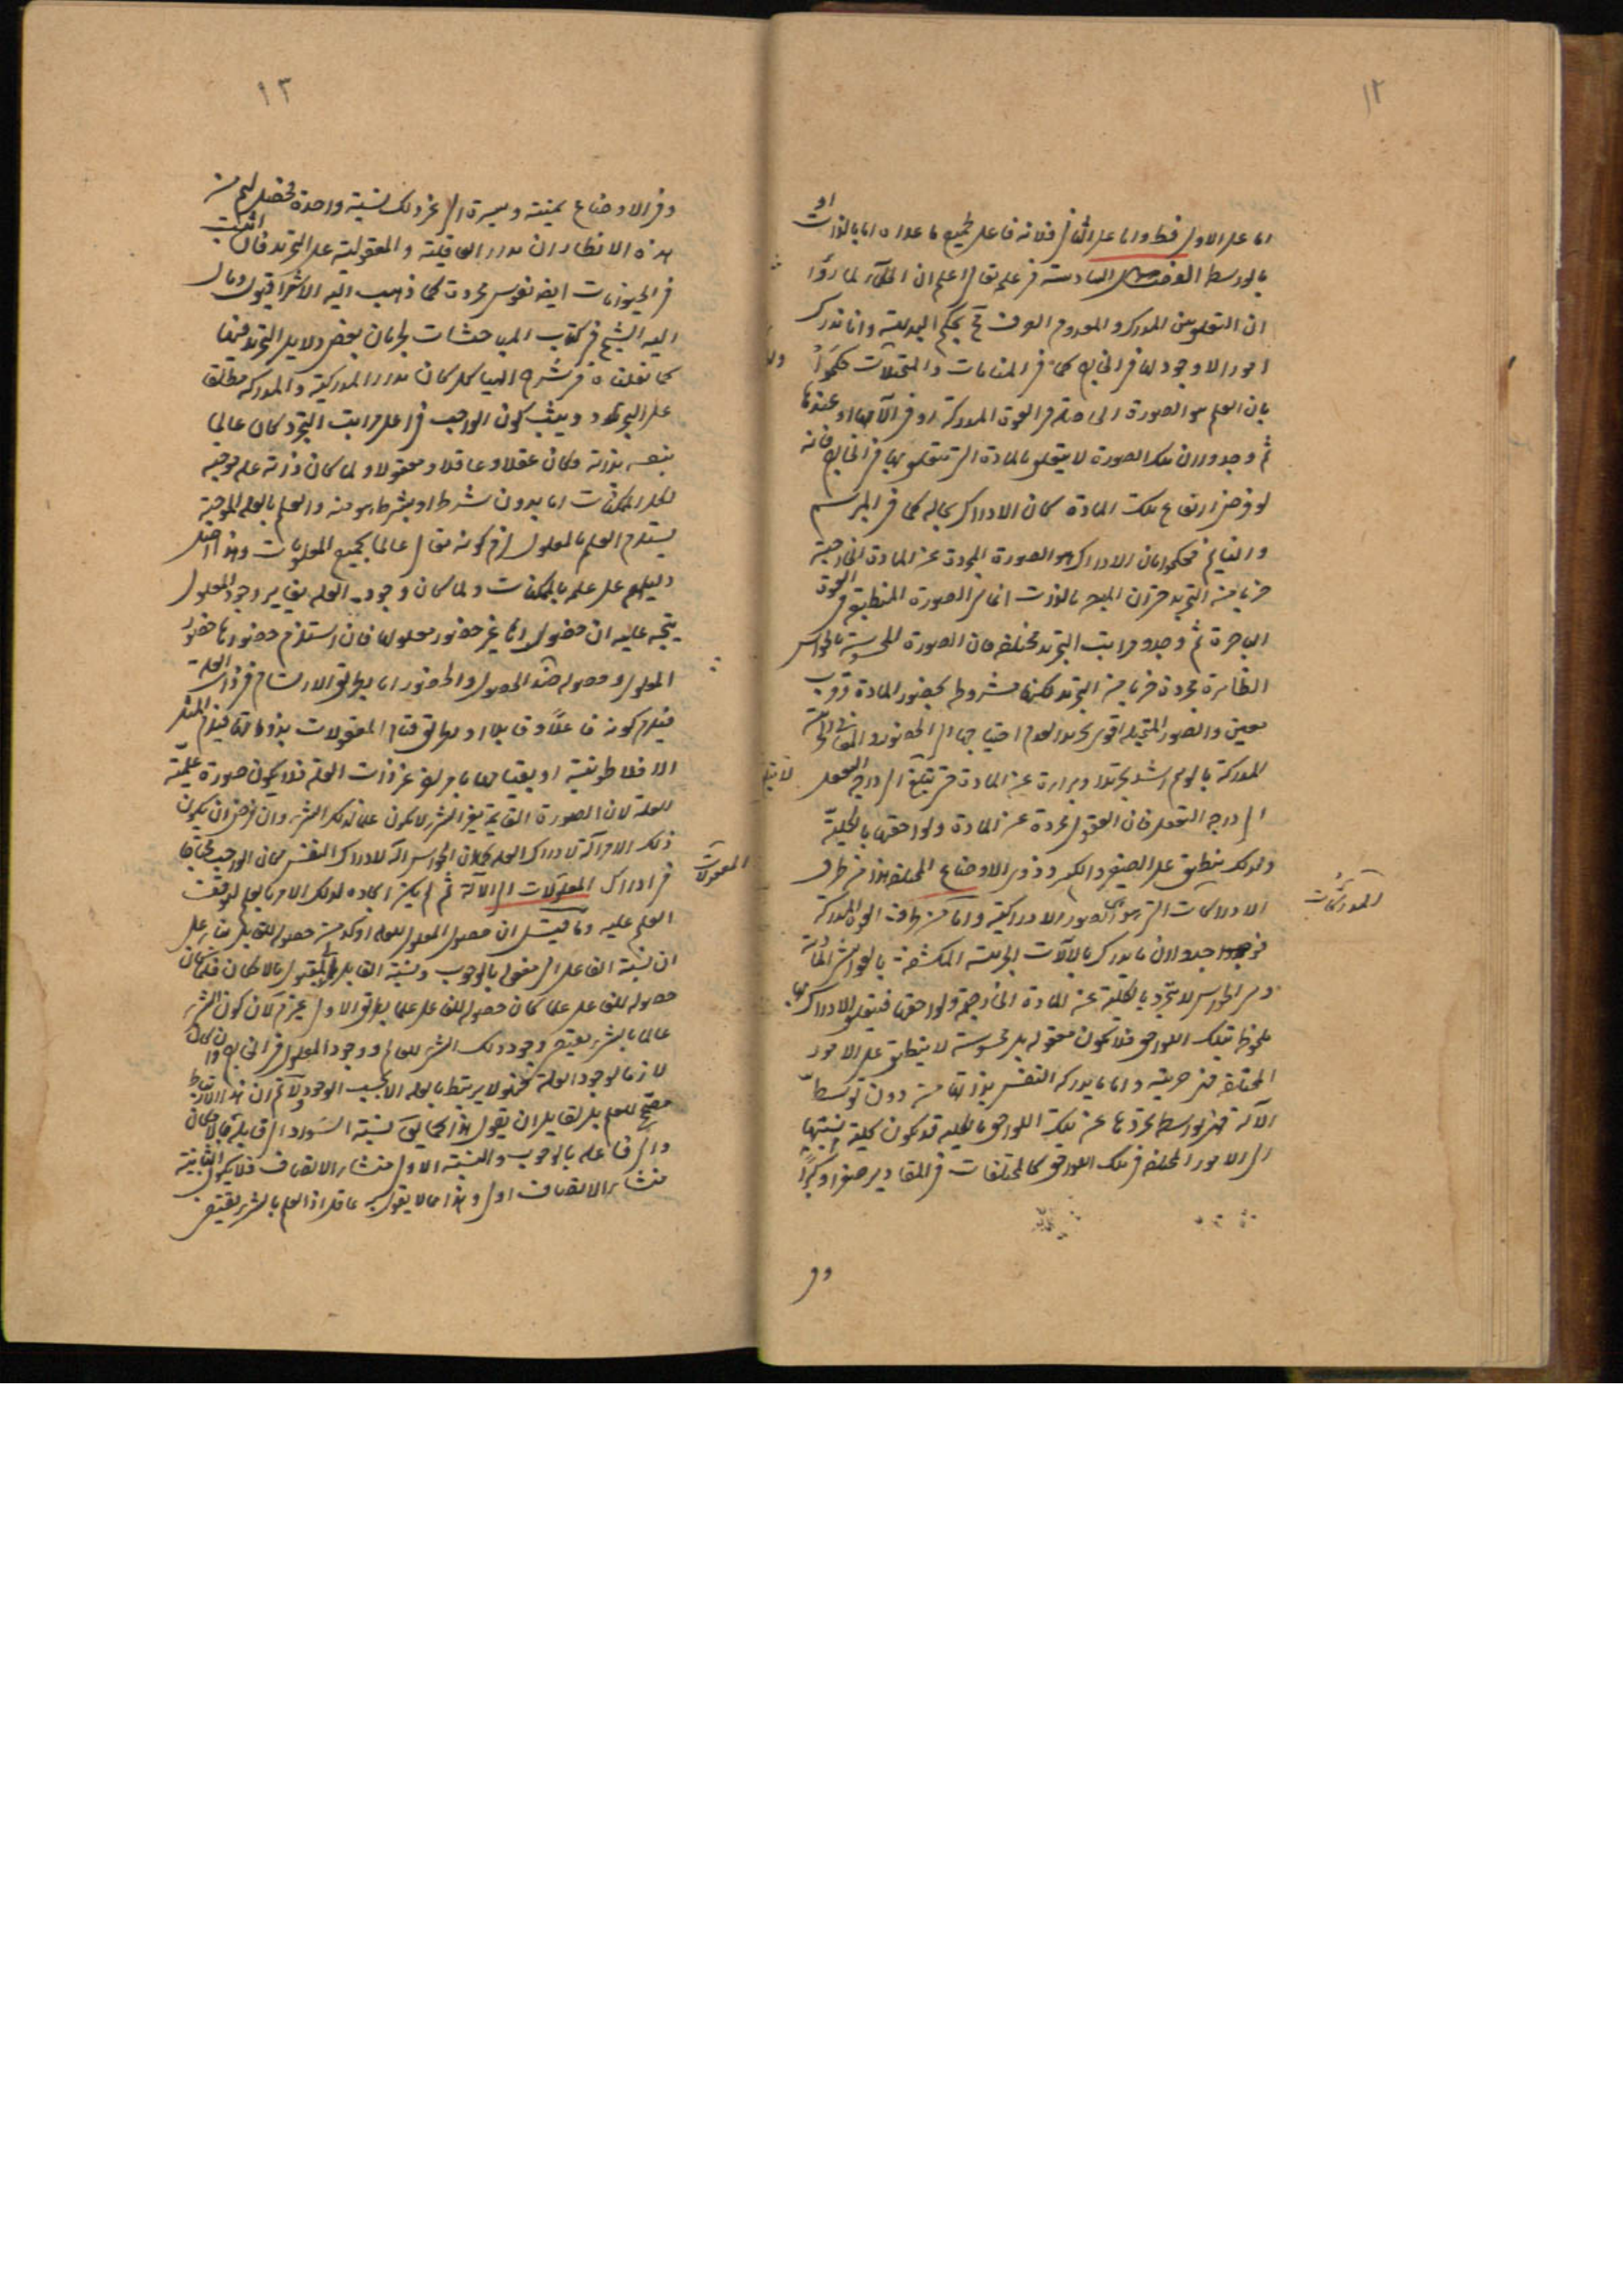 ١٢
اما على الاول فظ واما على الثاني فلانه فاعل لجميع ما عداه اما بالذات او
بالوسط الفصل السادسة في علمه تعالى اعلم ان الحكماء لما رأوا
ان التعلق بين المدرك والمعدوم الصرف مح بحكم البديهة وانا ندرك
امورا لا وجود لها في الخارج كما في المنامات والمتخيلات حكموا
بان العلم هو الصورة الحاصلة في القوة المدركة او في الآتها او عندها
ثم وجدوا ان تلك الصورة لا يتعلق بالمادة التي تتعلق بها في الخارج فانه
لو فرض ارتفاع تلك المادة كان الادراك بحاله كما في المبرسم
والنايم فحكموا بان الادراك هو الصورة المجردة عن المادة الخارجية
ضربا من التجريد حتى ان المبصر بالذات انما هي الصورة المنطبقة في القوة
الباصرة ثم وجدوا مراتب التجريد مختلفة فان الصورة المحسوسة بالحواس
الظاهرة مجردة ضربا من التجريد لكنها مشروطة بحضور المادة وقرب
معين والصور المتخيلة اقوى تجريدا لعدم احتياجها الى الحضور والمعاني الجزئية
المدركة بالوهم اشد تجريدا وبراءة عن المادة حتى يبلغ الى درجة التعقل
الى درجة التعقل فان المعقول مجردة عن المادة ولواحقها بالكلية
ولذلك ينطبق على الصغير والكبير وذوي الاوضاع المختلفة هذا من طرف
المدركات
الادراكات التي هي الصور الادراكية واما من طرف القوة المدركة
فوجدوا ان ما يدرك بالآلات الجرمية المكتنفة بالعوارض المادية
وهي الحواس لا يتجرد بالكلية عن المادة الخارجية ولواحقها فيتعلق الادراك بها
ملحوظا بتلك اللواحق فلا يكون معقولة بل محسوسة لا ينطبق على الامور
المختلفة فهي جزئية واما ما يدركه النفس بذاتها من دون توسط
الآلة فهي بواسطة تجردها عن تلك اللواحق بالكلية قد يكون كلية نسبتها
الى الامور المختلفة في تلك اللواحق كالمختلفات في المقادير صغرا وكبرا
وفي
١٣
وفي الاوضاع يمينة ويسرة الى غير ذلك نسبة واحدة فحصل لهم من
هذه الانظار ان مدار العاقلية والمعقولية على التجرد فان اثبت
في الحيوانات ايضا نفوس مجردة كما ذهب اليه الاشراقيون ومال
اليه الشيخ في كتاب المباحثات لجريان بعض دلايل التجرد فيها
كما نقلناه في شرح الهياكل كان مدار المدركية والمدركة مطلقا
على التجرد وحيث يكون الواجب في اعلى مراتب التجرد كان عالما
بنفسه بذاته وكان عقلا وعاقلا ومعقولا ولما كان ذاته علة موجبة
لكل الممكنات اما بدون شرط او بشرط هو منه والعلم بالعلة الموجبة
يستلزم العلم بالمعلول لزم كونه تعالى عالما بجميع المعلومات وهذا اصل
دليلهم على علمه بالممكنات ولما كان وجود العلة يغاير وجود المعلول
يتجه عليه ان حضورها غير حضور معلولها فان استلزم حضورها حضور
المعلول وحصوله فهذا الحصول والحضور اما بطريق الارتسام في ذات العلة
فيلزم كونه فاعلا وقابلا او بطريق قيام المعقولات بذواتها فيلزم المثل
الافلاطونية او بقيامها بامر اخر غير ذات العلة فلا يكون صورة علمية
للعلة لان الصورة القايمة بغير الشيء لا يكون علما لذلك الشيء وان فرض ان يكون
ذلك الامر آلة لادراك العلة كما ان الحواس آلة لادراك النفس كان الواجب محتاجا
المعقولات
في ادراك المعلولات الى الآلة ثم لم يكن ايجاده لذلك الامر بالعلم لتوقف
العلم عليه وما قيل ان حصول المعلول للعلة اوكد من حصوله للقابل بناء على
ان نسبة الفاعل الى مفعوله بالوجوب ونسبة القابل الى المقبول بالامكان فلما كان
حصوله للقابل علما كان حصوله للفاعل علما بطريق الاولى غير تام لان كون الشيء
عالما بالشيء يقتضي وجود ذلك الشيء للعالم ووجود المعلول في الخارج وان كان
لازما لوجود العلة فهو لا يرتبط بالعلة الا بحسب الوجود ولا تم ان هذا الارتباط
مصحح للعلم بل لقايل ان يقول هذا كما يق نسبة السواد الى قابله بالامكان
والى فاعله بالوجوب والنسبة الاولى منشاء الاتصاف فلا يكون الثانية
منشاء الاتصاف اولى وهذا مما لا يقول به عاقل اذ العلم بالشيء يقتضي